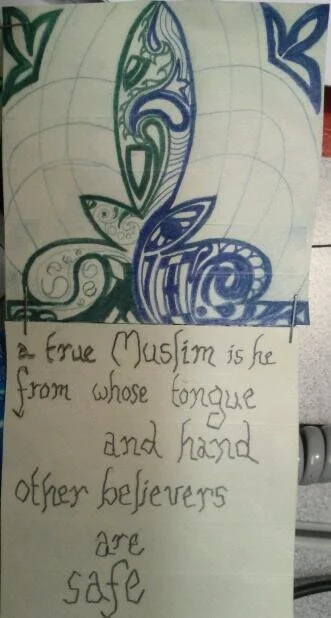 a true Muslim is he
from whose tongue
and hand
other believers
are
safe